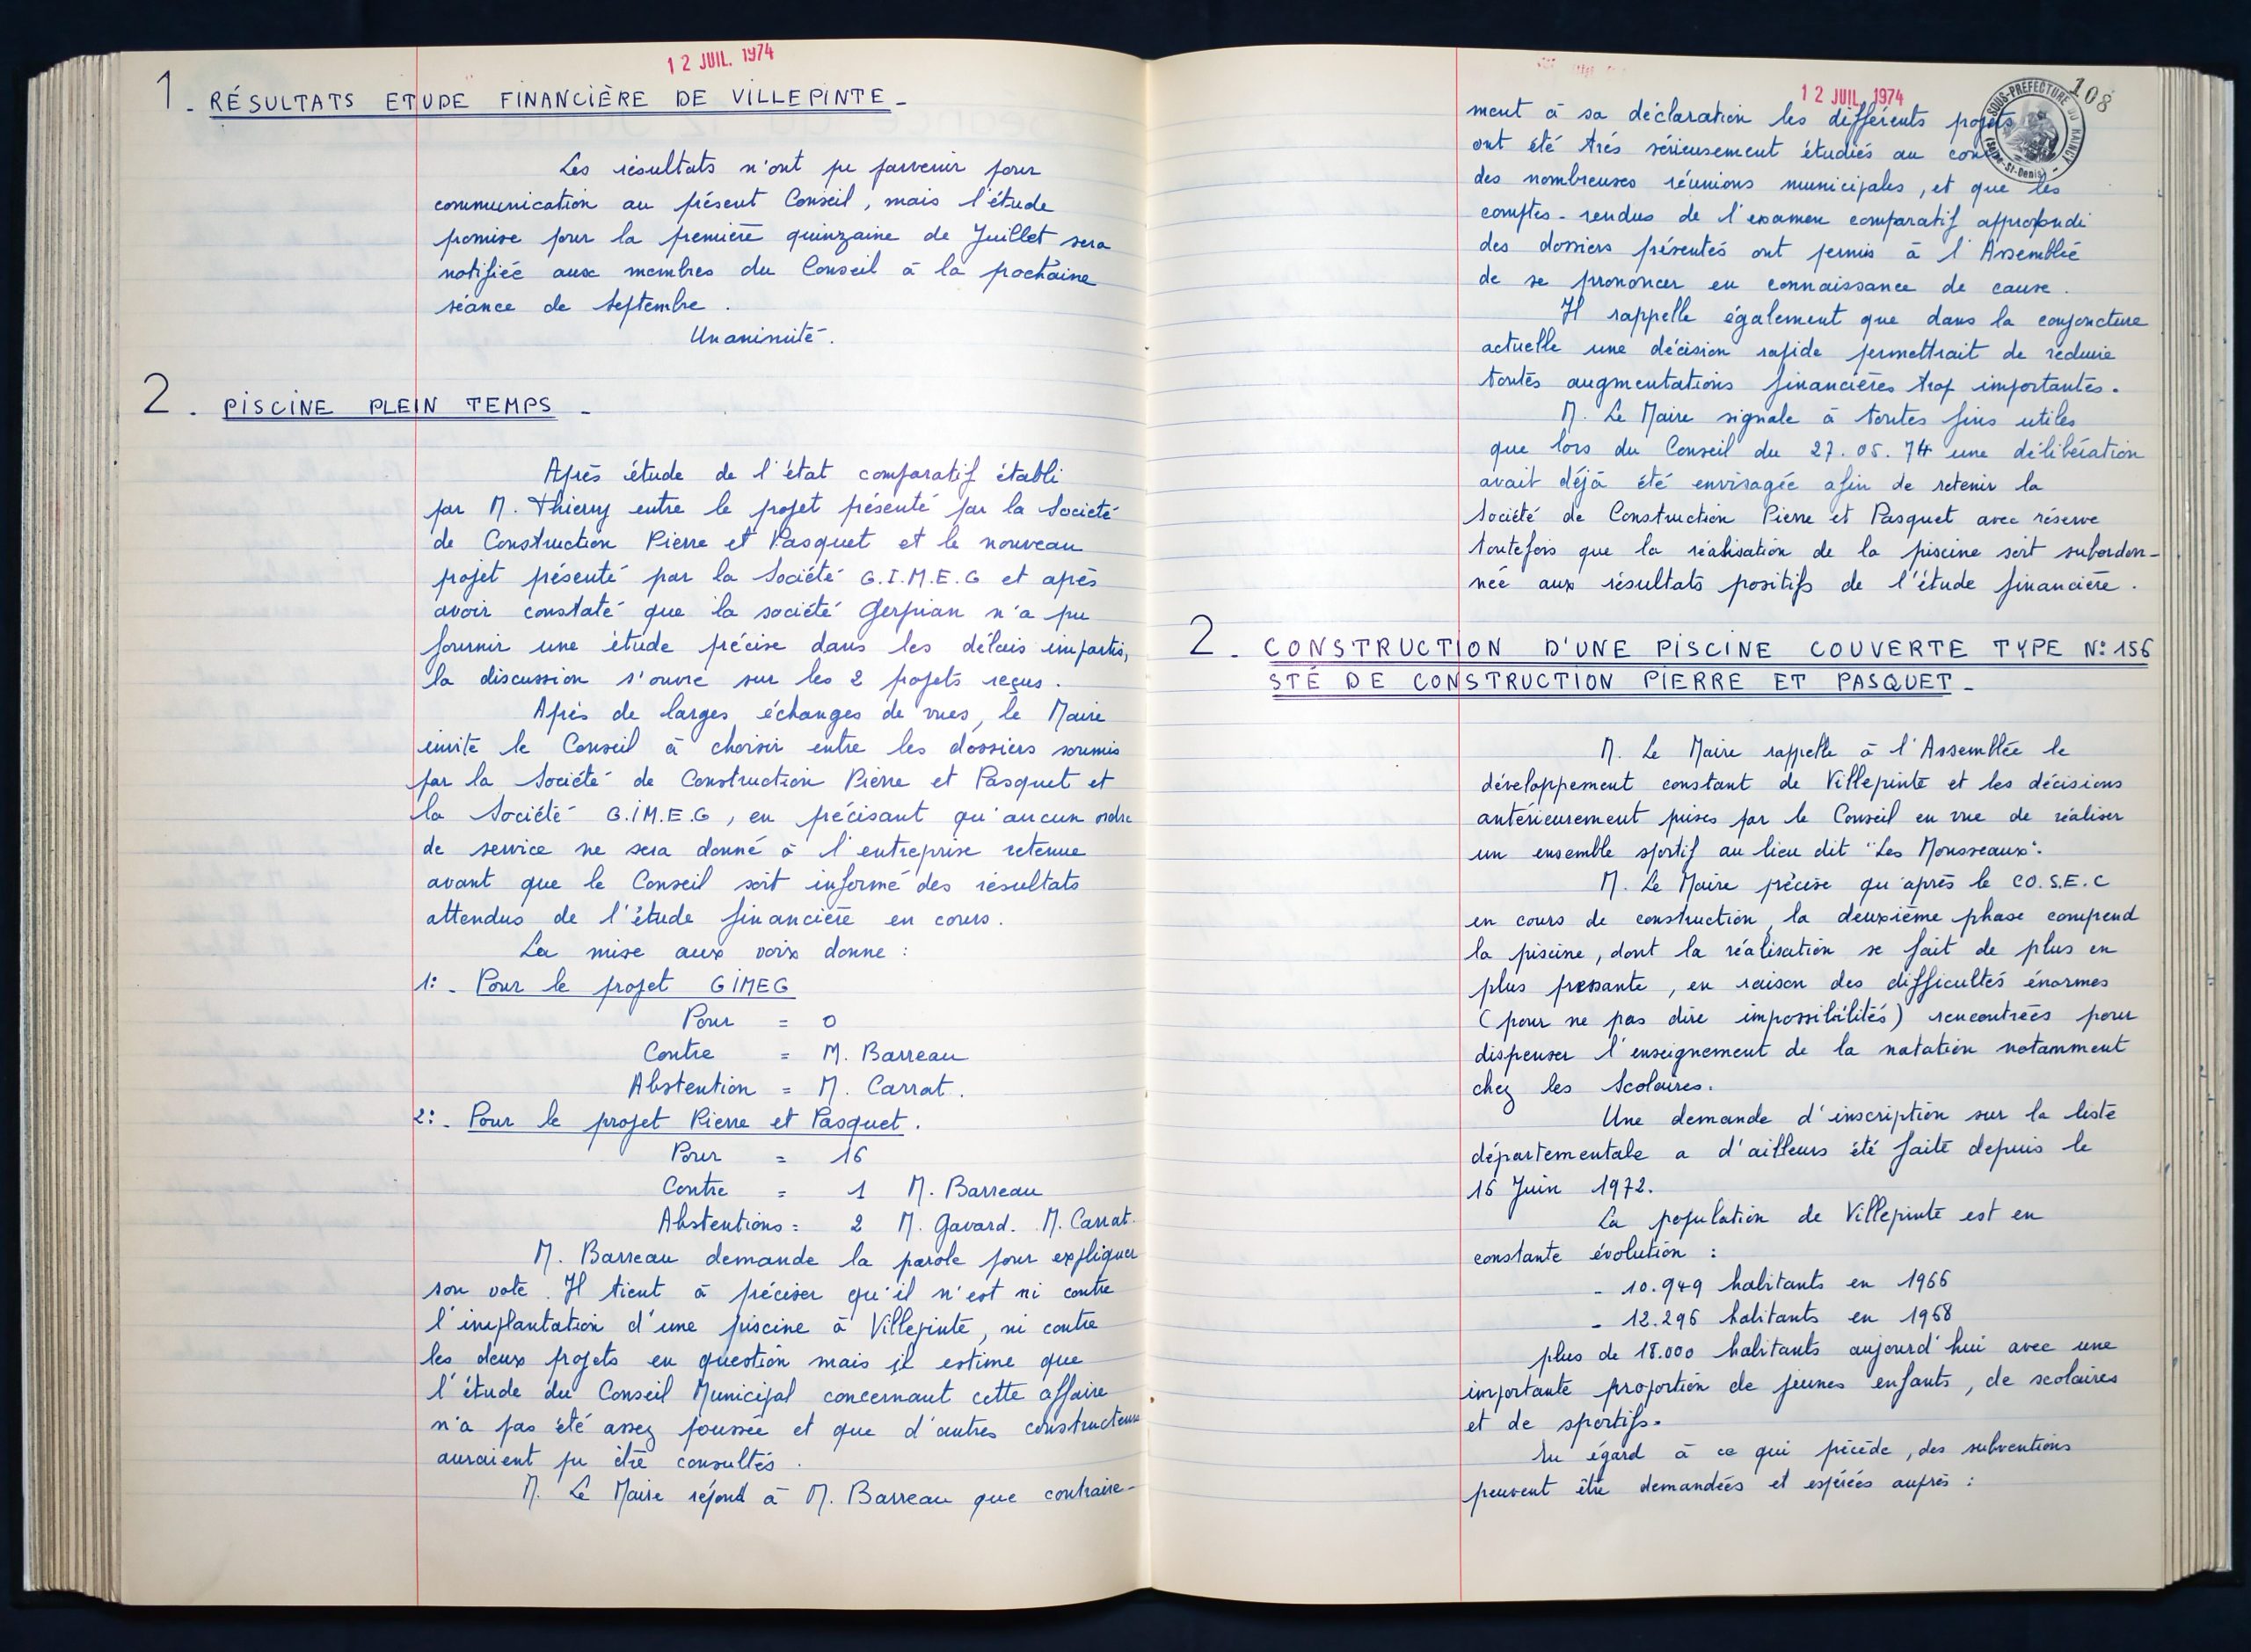 12 JUIL. 1974
1 - RÉSULTATS ETUDE FINANCIÈRE DE VILLEPINTE -
Les résultats n'ont pu parvenir pour
communication au présent Conseil, mais l'étude
promise pour la première quinzaine de Juillet sera
notifiée aux membres du Conseil à la prochaine
séance de Septembre .
Unanimité .
2 . PISCINE PLEIN TEMPS -
Après étude de l'état comparatif établi
par M. Thierry entre le projet présenté par la Société
de Construction Pierre et Pasquet et le nouveau
projet présenté par la Société G.I.M.E.G et après
avoir constaté que la société Gerpian n'a pu
fournir une étude précise dans les délais impartis,
la discussion s'ouvre sur les 2 projets reçus .
Après de larges échanges de vues, le Maire
invite le Conseil à choisir entre les dossiers soumis
par la Société de Construction Pierre et Pasquet et
la Société G.IM.E.G , en précisant qu'aucun ordre
de service ne sera donné à l'entreprise retenue
avant que le Conseil soit informé des résultats
attendus de l'étude financière en cours .
La mise aux voix donne :
1: - Pour le projet GIMEG
Pour = 0
Contre = M. Barreau
Abstention = M. Carrat .
2: - Pour le projet Pierre et Pasquet .
Pour = 16
Contre = 1 M. Barreau
Abstentions = 2 M. Gavard. M. Carrat.
M. Barreau demande la parole pour expliquer
son vote . Il tient à préciser qu'il n'est ni contre
l'implantation d'une piscine à Villepinte, ni contre
les deux projets en question mais il estime que
l'étude du Conseil Municipal concernant cette affaire
n'a pas été assez poussée et que d'autres constructeurs
auraient pu être consultés .
M. Le Maire répond à M. Barreau que contraire-
12 JUIL. 1974
108
SOUS-PREFECTURE DU RAINCY
(Seine-St-Denis)
ment à sa déclaration les différents projets
ont été très sérieusement étudiés au
des nombreuses réunions municipales, et que les
comptes-rendus de l'examen comparatif approfondi
des dossiers présentés ont permis à l'Assemblée
de se prononcer en connaissance de cause .
Il rappelle également que dans la conjoncture
actuelle une décision rapide permettrait de réduire
toutes augmentations financières trop importantes.
M. Le Maire signale à toutes fins utiles
que lors du Conseil du 27.05.74 une délibération
avait déjà été envisagée afin de retenir la
Société de Construction Pierre et Pasquet avec réserve
toutefois que la réalisation de la piscine soit subordon-
née aux résultats positifs de l'étude financière .
2 - CONSTRUCTION D'UNE PISCINE COUVERTE TYPE N: 156
STÉ DE CONSTRUCTION PIERRE ET PASQUET -
M. Le Maire rappelle à l'Assemblée le
développement constant de Villepinte et les décisions
antérieurement prises par le Conseil en vue de réaliser
un ensemble sportif au lieu dit "Les Mousseaux".
M. Le Maire précise qu'après le CO.S.E.C
en cours de construction, la deuxième phase comprend
la piscine, dont la réalisation se fait de plus en
plus pressante, en raison des difficultés énormes
(pour ne pas dire impossibilités) rencontrées pour
dispenser l'enseignement de la natation notamment
chez les Scolaires.
Une demande d'inscription sur la liste
départementale a d'ailleurs été faite depuis le
16 Juin 1972.
La population de Villepinte est en
constante évolution :
- 10.949 habitants en 1966
- 12.296 habitants en 1968
plus de 18.000 habitants aujourd'hui avec une
importante proportion de jeunes enfants, de scolaires
et de sportifs.
Eu égard à ce qui précède, des subventions
peuvent être demandées et espérées auprès :